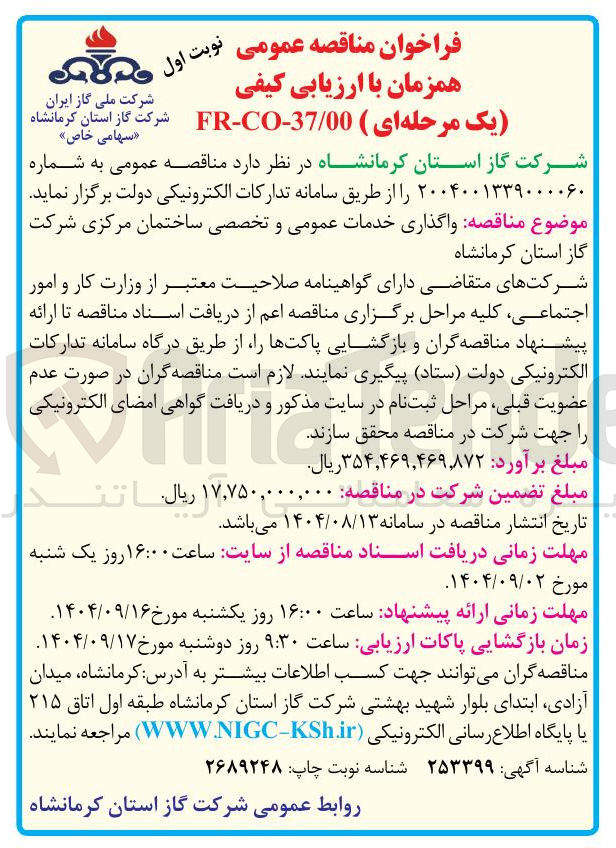 فراخوان مناقصه عمومی
همزمان با ارزیابی کیفی
(یک مرحله‌ای) FR-CO-37/00
نوبت اول
شرکت ملی گاز ایران
شرکت گاز استان کرمانشاه
«سهامی خاص»
شرکت گاز استان کرمانشاه در نظر دارد مناقصه عمومی به شماره
۲۰۰۴۰۰۱۳۳۹۰۰۰۰۶۰ را از طریق سامانه تدارکات الکترونیکی دولت برگزار نماید.
موضوع مناقصه: واگذاری خدمات عمومی و تخصصی ساختمان مرکزی شرکت
گاز استان کرمانشاه
شرکت‌های متقاضی دارای گواهینامه صلاحیت معتبر از وزارت کار و امور
اجتماعی، کلیه مراحل برگزاری مناقصه اعم از دریافت اسناد مناقصه تا ارائه
پیشنهاد مناقصه‌گران و بازگشایی پاکت‌ها را، از طریق درگاه سامانه تدارکات
الکترونیکی دولت (ستاد) پیگیری نمایند. لازم است مناقصه‌گران در صورت عدم
عضویت قبلی، مراحل ثبت‌نام در سایت مذکور و دریافت گواهی امضای الکترونیکی
را جهت شرکت در مناقصه محقق سازند.
مبلغ برآورد: ۳۵۴,۴۶۹,۴۶۹,۸۷۲ریال.
مبلغ تضمین شرکت در مناقصه: ۱۷,۷۵۰,۰۰۰,۰۰۰ ریال.
تاریخ انتشار مناقصه در سامانه۱۴۰۴/۰۸/۱۳ می‌باشد.
مهلت زمانی دریافت اسناد مناقصه از سایت: ساعت۱۶:۰۰روز یک شنبه
مورخ ۱۴۰۴/۰۹/۰۲.
مهلت زمانی ارائه پیشنهاد: ساعت ۱۶:۰۰ روز یکشنبه مورخ۱۴۰۴/۰۹/۱۶.
زمان بازگشایی پاکات ارزیابی: ساعت ۹:۳۰ روز دوشنبه مورخ۱۴۰۴/۰۹/۱۷.
مناقصه‌گران می‌توانند جهت کسب اطلاعات بیشتر به آدرس:کرمانشاه، میدان
آزادی، ابتدای بلوار شهید بهشتی شرکت گاز استان کرمانشاه طبقه اول اتاق ۲۱۵
یا پایگاه اطلاع‌رسانی الکترونیکی (WWW.NIGC-KSh.ir) مراجعه نمایند.
شناسه آگهی: ۲۵۳۳۹۹ شناسه نوبت چاپ: ۲۶۸۹۲۴۸
روابط عمومی شرکت گاز استان کرمانشاه